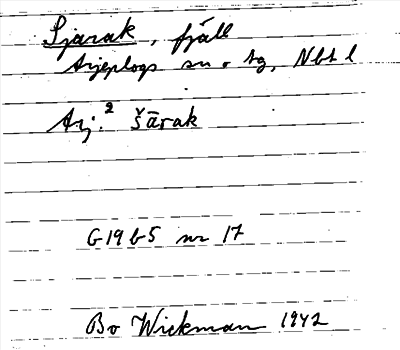 Sjarak, fjäll
Arjeplogs sn o tg, Nbt l
Arj.² šārak
G19 b5 nr 17
Bo Wickman 1942